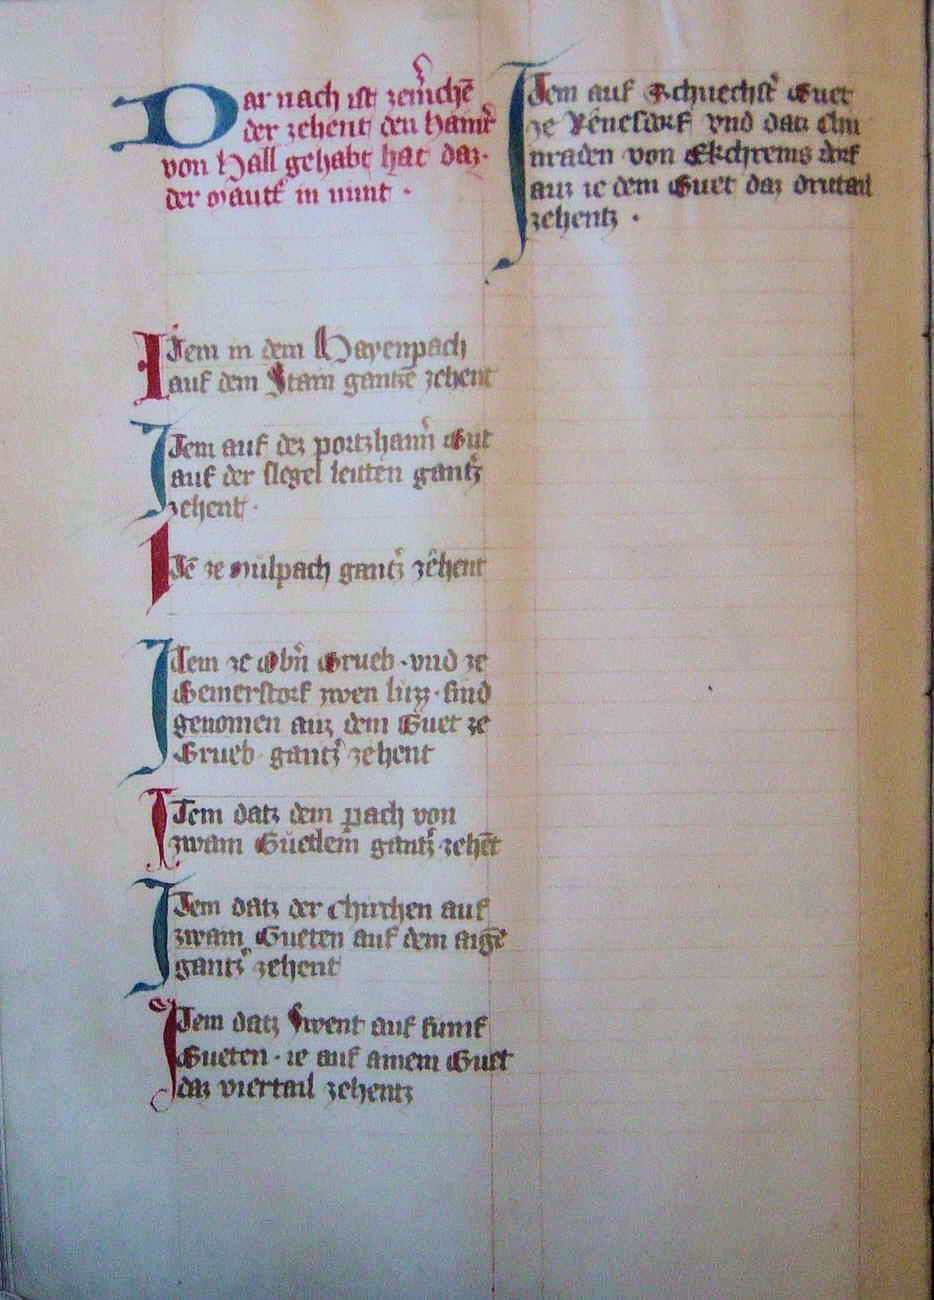 Dar nach ist ze
der zehent den
von Hall gehabt hat daz
der in nimt ·
Item in dem Hayenpach
auf dem Stain zehent
Item auf der Gut
auf der slegel leitten gantz̉
zehent ·
Itē ze mu̍lpach gantz̉ zêhent
Item ze Obn̄ Grueb · vnd ze
zwen luzz · sind
genomen auz dem Guet ze
Grueb gantz̉ zehent
Item datz dem pach von
zwain gantz̉ zehēt
Item datz der chirchen auf
zwain Gueten auf dem aigē
gantz̉ zehent
Item datz Swent auf fumf
Gueten · ie auf ainem Guet
daz viertail zehentz
Item auf Guet
ze vnd datz
von
auz ie dem Guet daz dritail
zehentz ·